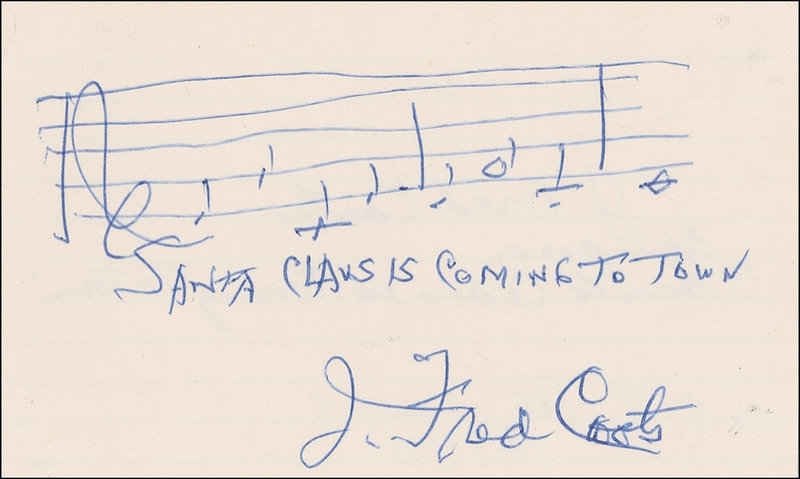 SANTA CLAUS IS COMING TO TOWN
J. Fred Coots